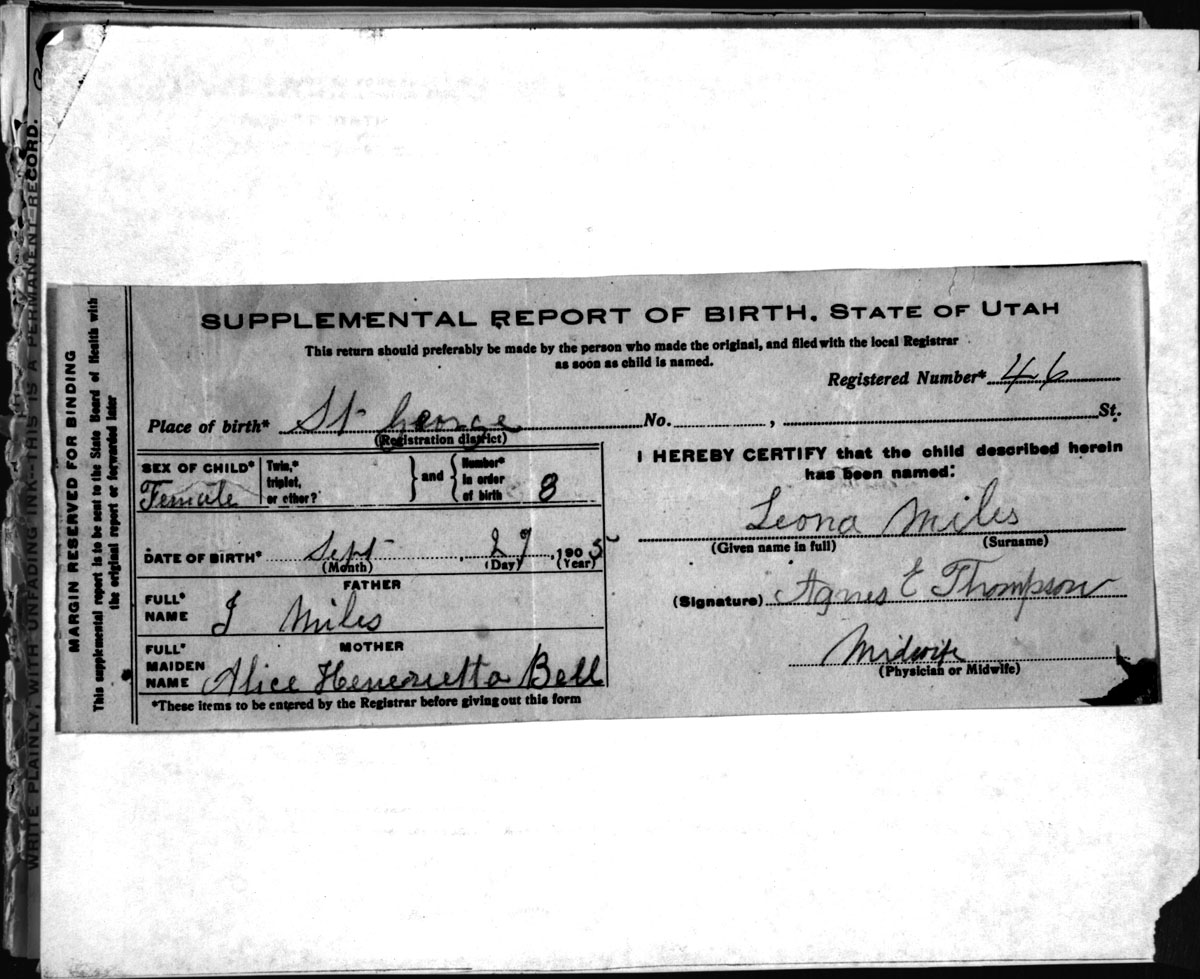 SUPPLEMENTAL REPORT OF BIRTH, STATE OF UTAH
This return should preferably be made by the person who made the original, and filed with the local Registrar
as soon as child is named.
Registered Number* 46
Place of birth* St George No. , St.
(Registration district)
SEX OF CHILD* Female Twin,* triplet, or other? } and { Number* in order of birth 8
DATE OF BIRTH* Sept 27, 1905
(Month) (Day) (Year)
FATHER
FULL* NAME J Miles
MOTHER
FULL* MAIDEN NAME Alice Henerietta Bell
*These items to be entered by the Registrar before giving out this form
I HEREBY CERTIFY that the child described herein
has been named:
Leona Miles
(Given name in full) (Surname)
(Signature) Agnes E Thompson
Midwife
(Physician or Midwife)
MARGIN RESERVED FOR BINDING
This supplemental report is to be sent to the State Board of Health with
the original report or forwarded later
WRITE PLAINLY, WITH UNFADING INK--THIS IS A PERMANENT RECORD.